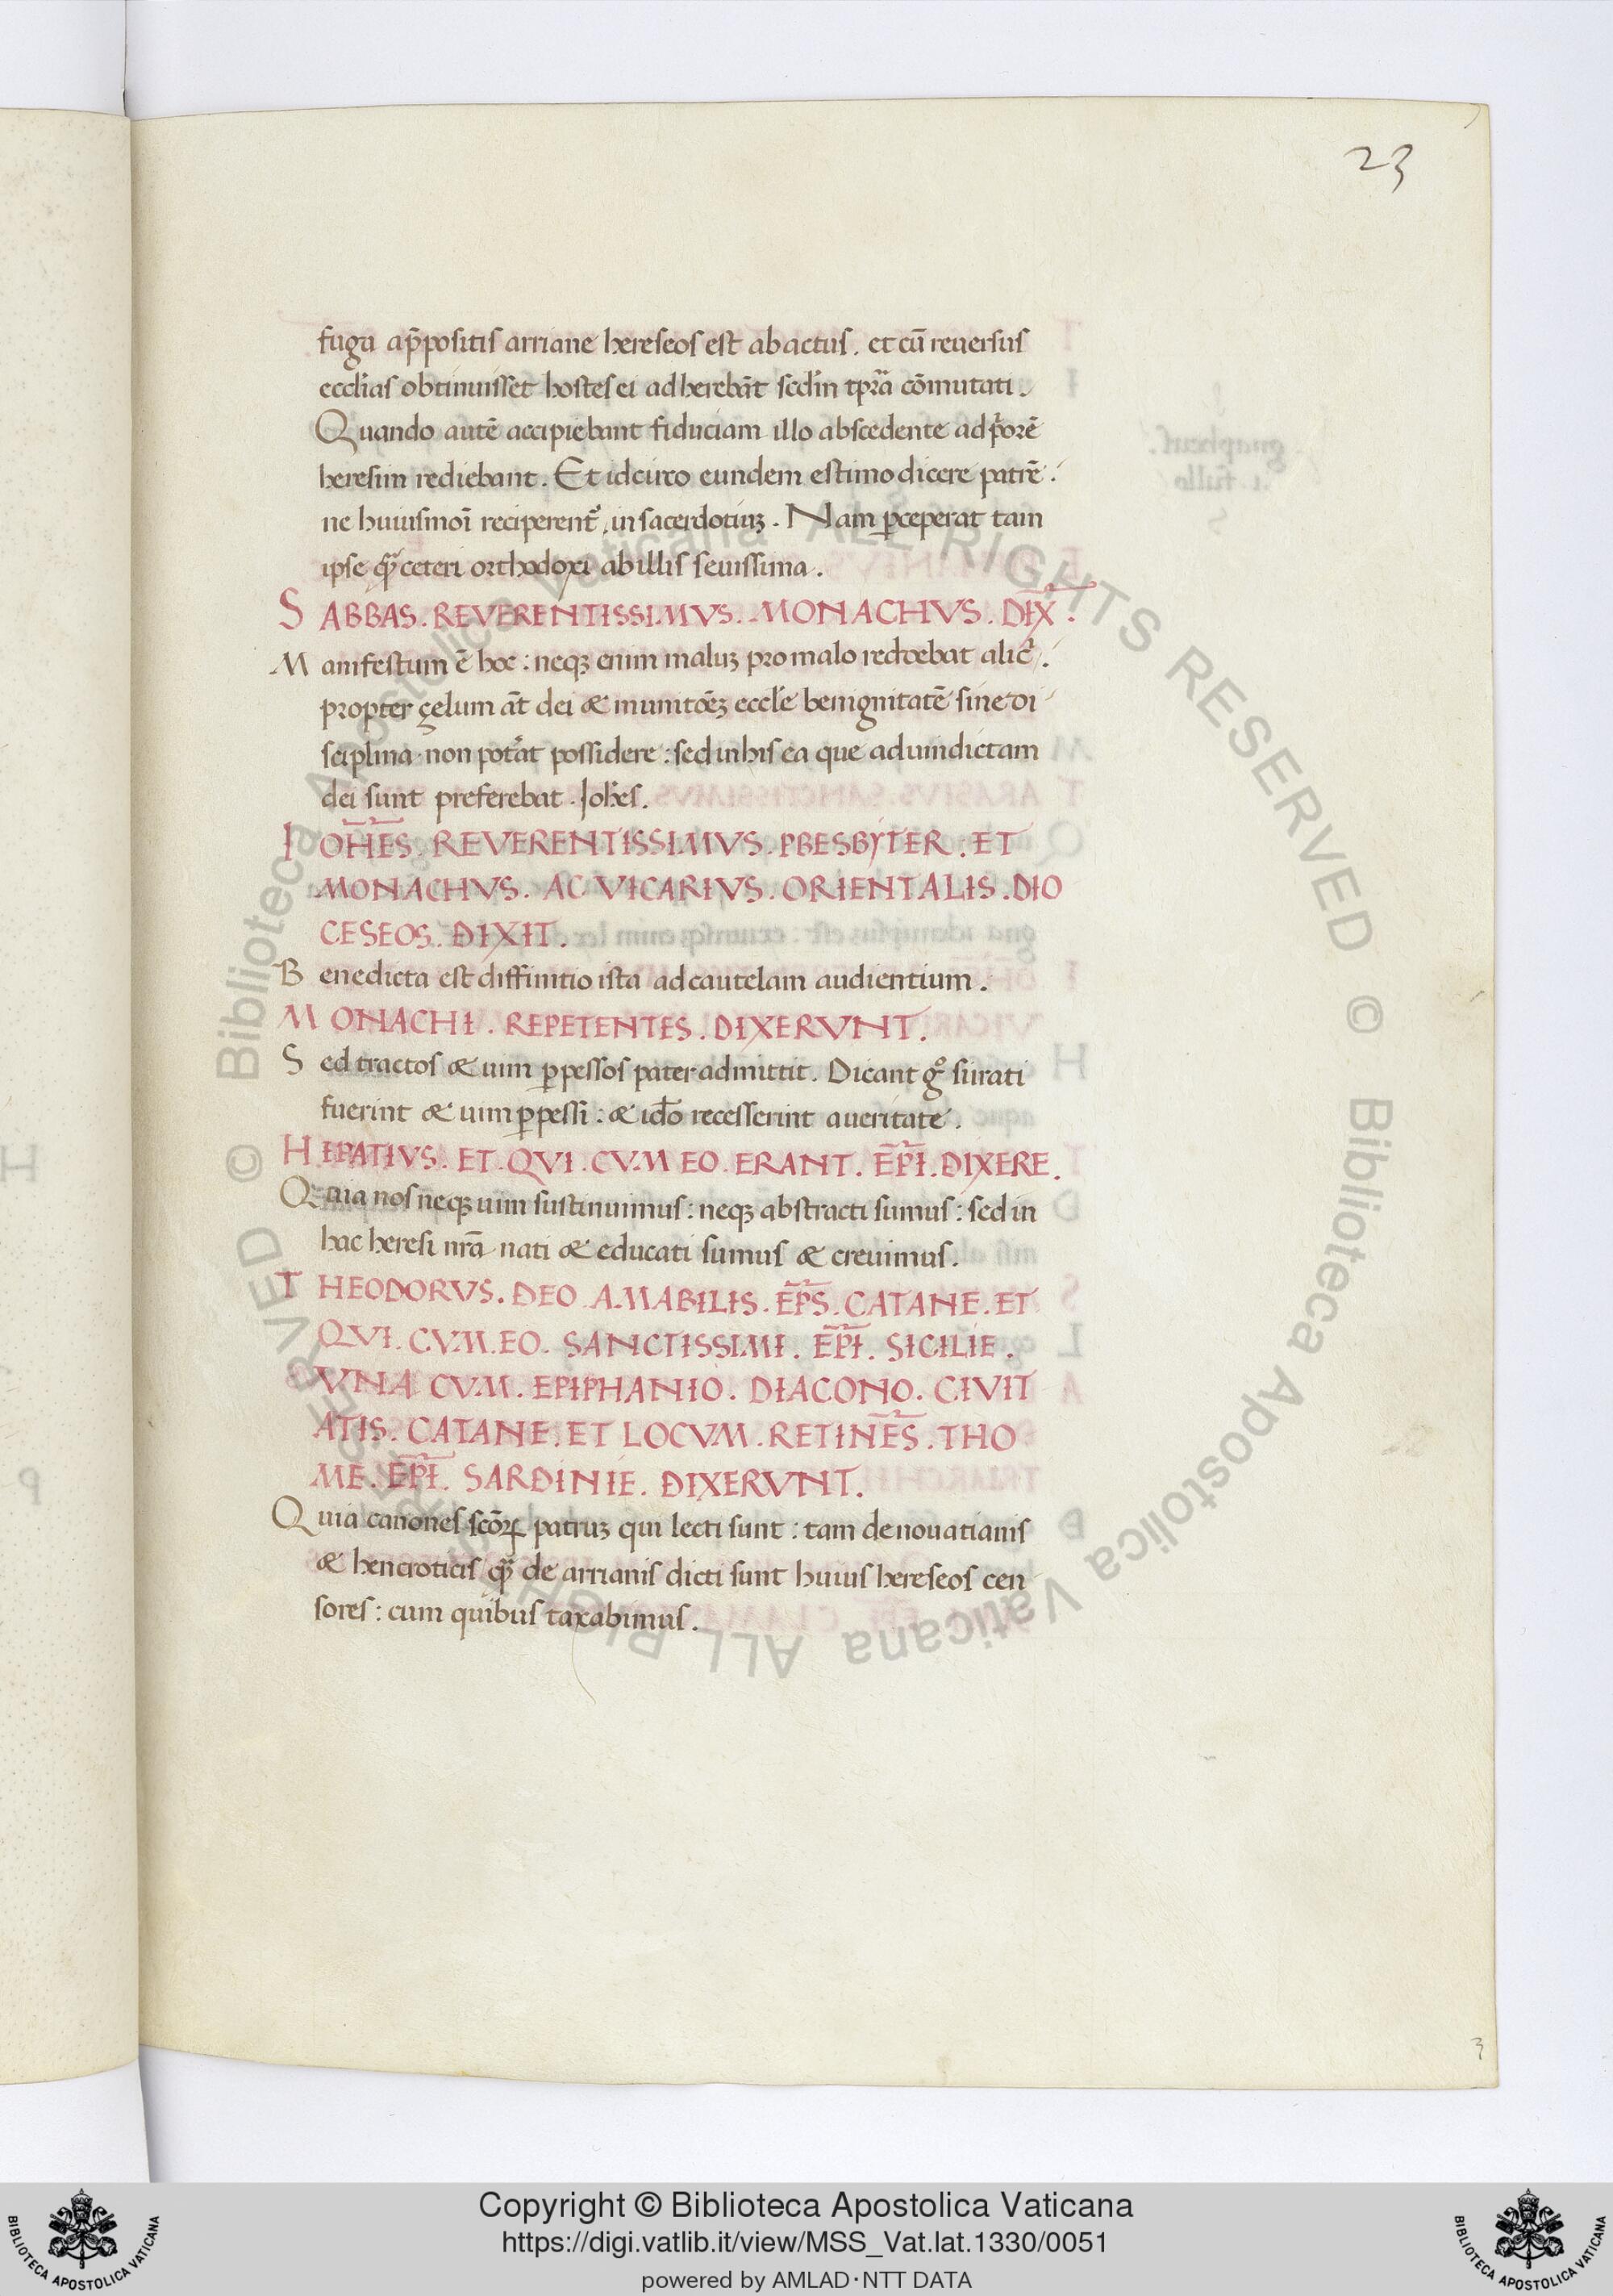 23
fuga ap̄positis arriane hereseos est abactus. et cū reuersus
eccl̄ias obtinuisset hostes ei adherebāt sedl̄m tp̄ra cōmutati.
Quando autē accipiebant fiduciam illo abscedente ad p̄orē
heresim rediebant. Et idcirco eundem estimo dicere patrē:
ne huiusmōi reciperent᷒ in sacerdotiuꝫ. Nam ꝑceperat tam
ipse qͣꝫ ceteri orthodoxi ab illis seuissima.
SABBAS. REVERENTISSIMVS. MONACHVS. DIX̄.
Manifestum ē hoc: neqꝫ enim maluꝫ pro malo reddebat alic᷒.
propter çelum āt dei & munitōeꝫ eccl̄e benignitatē sine di
sciplina non pot᷒at possidere: sed in his ea que ad uindictam
dei sunt preferebat. Joh̄es.
IOH̄ES. REVERENTISSIMVS. PBESBYTER. ET
MONACHVS. AC VICARIVS. ORIENTALIS. DIO
CESEOS. DIXIT.
Benedicta est diffinitio ista ad cautelam audientium.
MONACHI. REPETENTES. DIXERVNT.
Sed tractos & uim ꝑpessos pater admittit. Dicant gͦ si irati
fuerint & uim ꝑpessi: & id̄o recesserint a ueritate.
HEPATIVS. ET. QVI. CVM EO. ERANT. EP̄I. DIXERE.
Quia nos neqꝫ uim sustinuimus: neqꝫ abstracti sumus: sed in
hac heresi nr̄a nati & educati sumus & creuimus.
THEODORVS. DEO AMABILIS. EP̄S. CATANE. ET
QVI. CVM. EO. SANCTISSIMI. EP̄I. SICILIE.
VNA CVM. EPIPHANIO. DIACONO. CIVIT
ATIS. CATANE. ET LOCVM. RETINĒS. THO
ME. EP̄I. SARDINIE. DIXERVNT.
Quia canones scōꝝ patruꝫ qui lecti sunt: tam de nouatianis
& hencroticis qͣꝫ de arrianis dicti sunt huius hereseos cen
sores: cum quibus taxabimus.
3
© Biblioteca Apostolica Vaticana ALL RIGHTS RESERVED © Biblioteca Apostolica Vaticana ALL RIGHTS RESERVED
Copyright © Biblioteca Apostolica Vaticana
https://digi.vatlib.it/view/MSS_Vat.lat.1330/0051
powered by AMLAD・NTT DATA
BIBLIOTECA APOSTOLICA VATICANA
BIBLIOTECA APOSTOLICA VATICANA